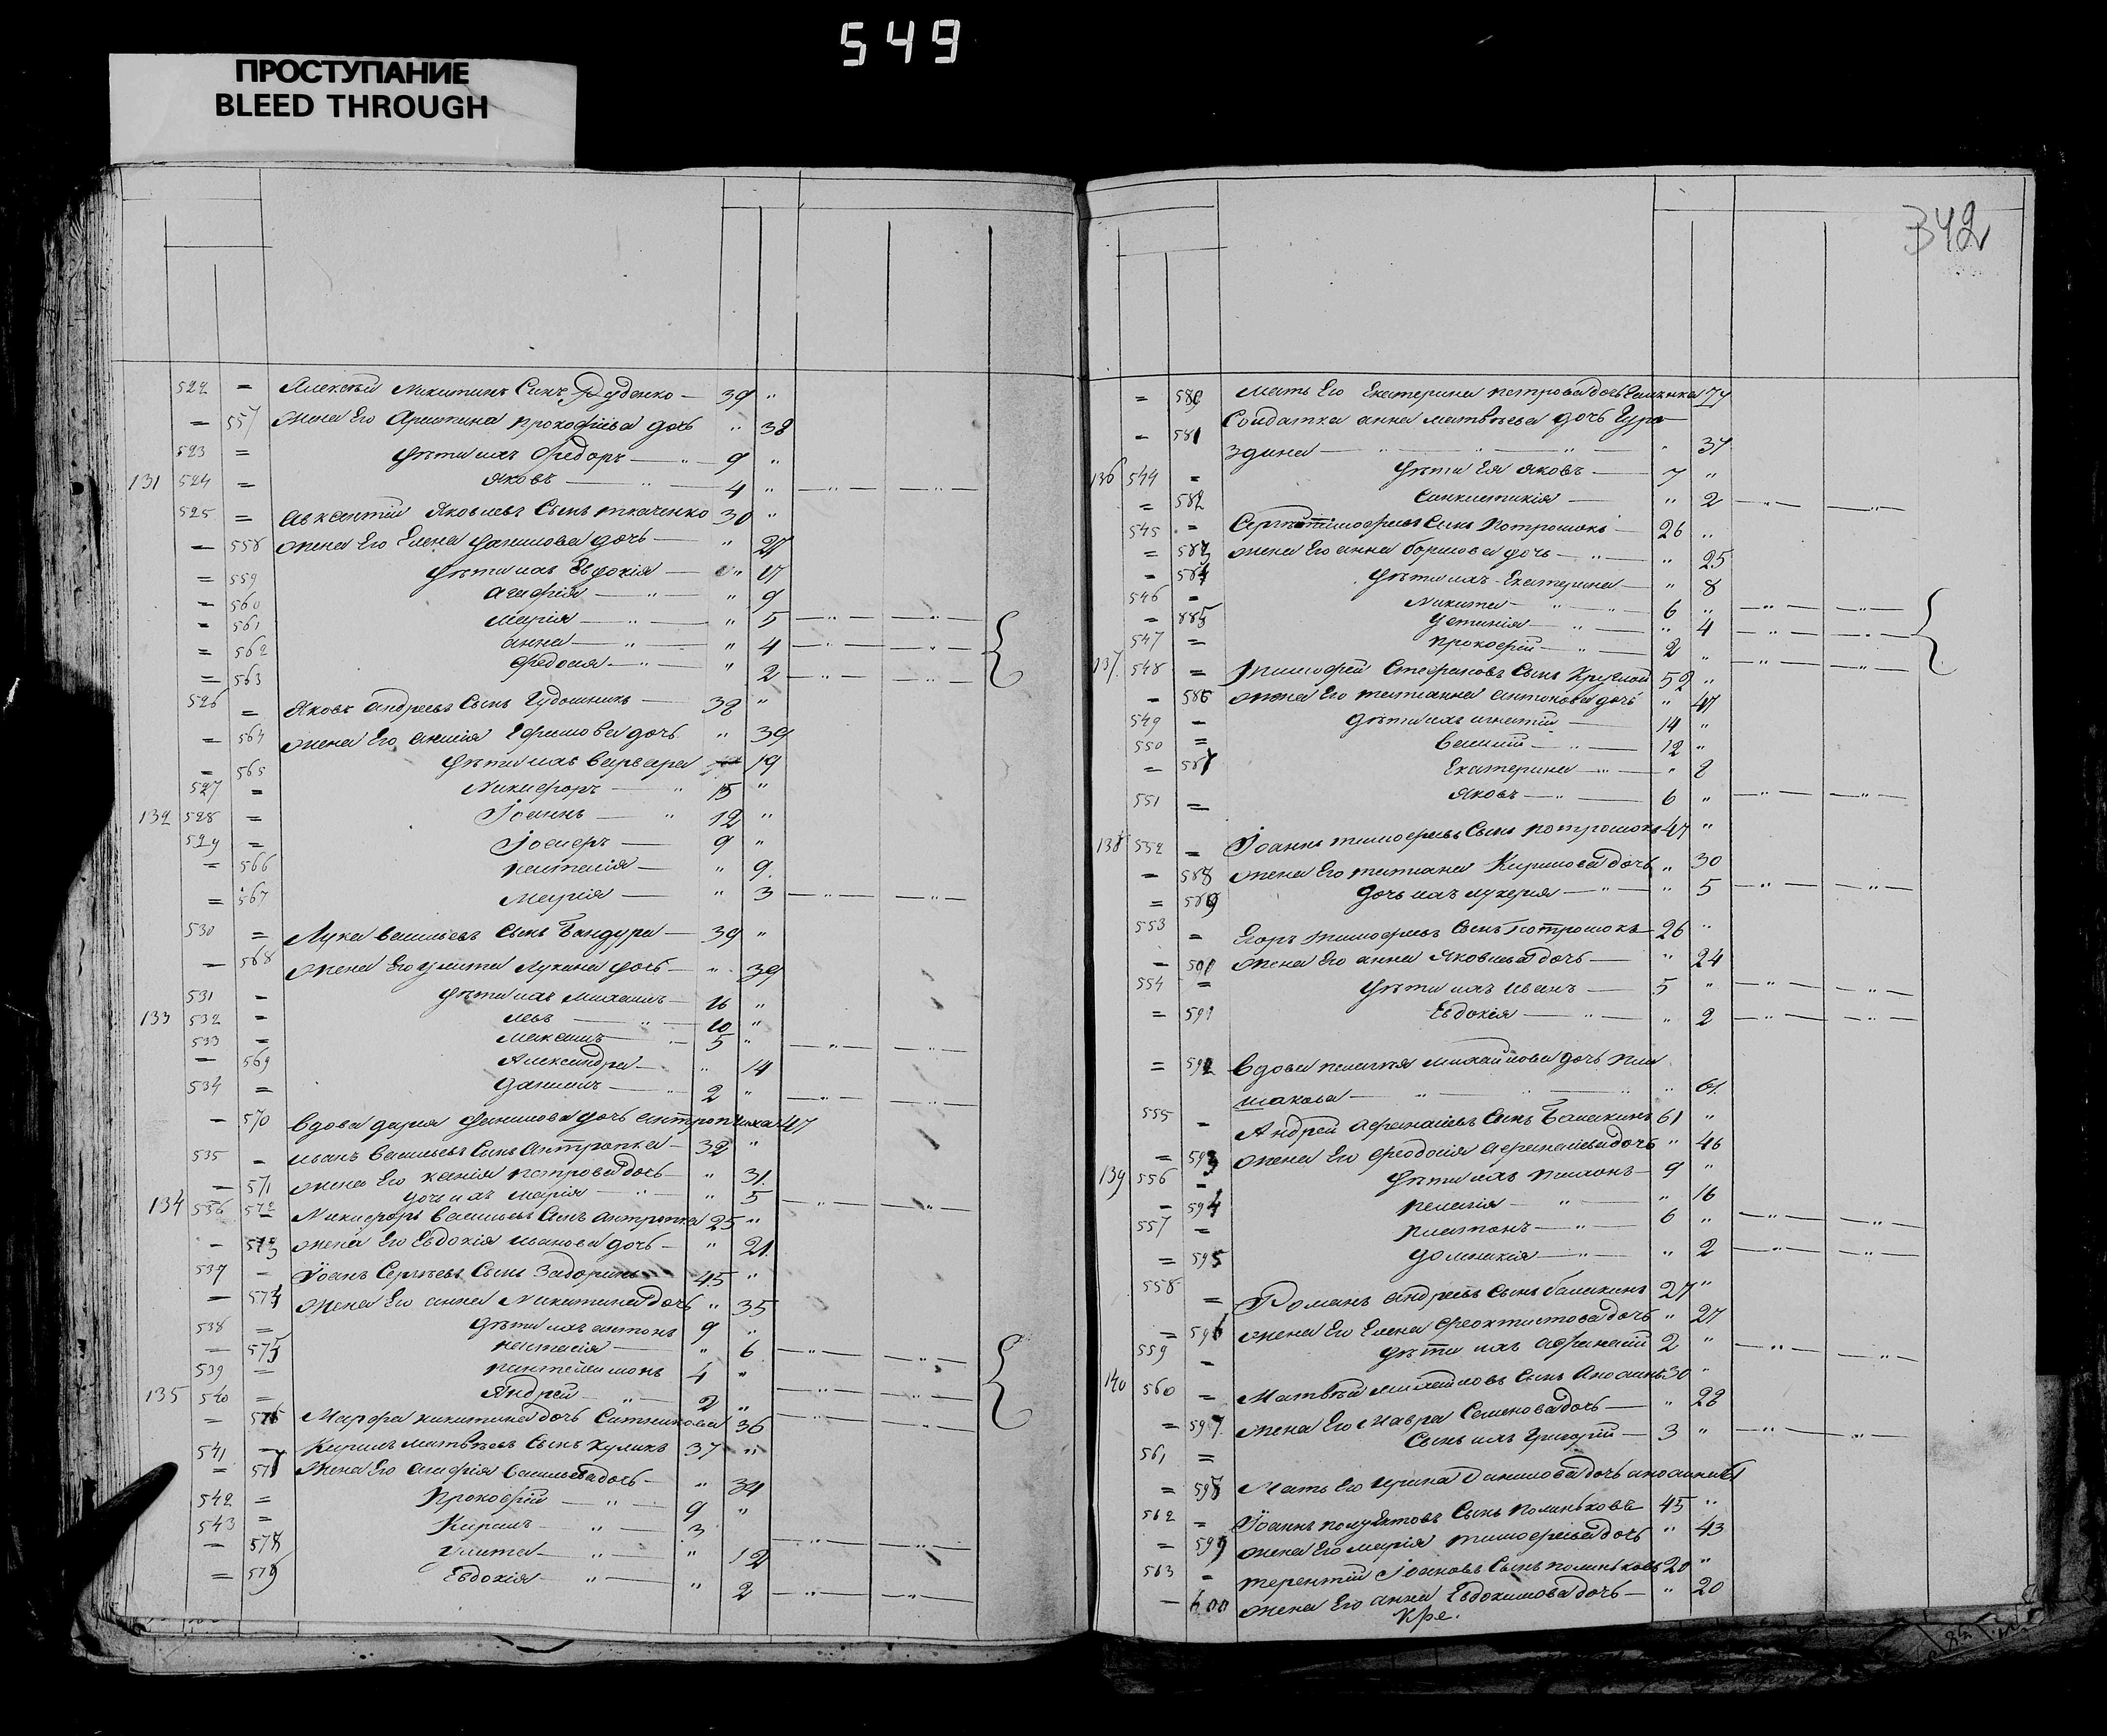 549
ПРОСТУПАНИЕ
BLEED THROUGH
522 = Алексѣй Никитинъ Сынъ Руденко — 39 "
= 557 Жена Его Аристина Прокофіева дочь " 38
523 = Дѣти ихъ Федоръ — " — 9 "
131 524 = Яковъ — " — 4 "
525 = Авксентій Яковлевъ Сынъ Ткаченко 30 "
= 558 Жена Его Елена Данилова дочь — " 27
= 559 Дѣти ихъ Евдокія — " 17
= 560 Агафія — " — " 9
= 561 Марія — " — " 5
= 562 Анна — " — " 4
= 563 Федосія — " — " 2
526 = Яковъ Андреевъ Сынъ — 38 "
= 564 Жена Его Ефимова дочь " 39
= 565 Дѣти ихъ Варвара 19
527 = Никифоръ — " 15 "
132 528 = Іоаннъ — " 12 "
529 = Іосифъ — 9 "
= 566 — " 9
= 567 Марія — " 3
530 = Лука Васильевъ Сынъ Бандура — 39 "
= 568 Жена Его Улита Лукина дочь — " 39
531 = Дѣти ихъ Михаилъ — 16 "
133 532 = Левъ — " — 10 "
533 = Максимъ — " 5 "
= 569 Александра — " 14
534 = Даніилъ — " 2 "
= 570 Вдова Дарія Данилова дочь 47
535 = Иванъ Васильевъ Сынъ Антропка — 32 "
= 571 Жена Его Ксенія Петрова дочь — " 31
дочь ихъ Марія — " — " 5
134 536 572 Никифоръ Васильевъ Сынъ Антропка 25 "
= 573 Жена Его Евдокія Иванова дочь — " 21
537 = Іоанъ Сергѣевъ Сынъ 45 "
= 574 Жена Его Анна Никитина дочь " 35
538 = Дѣти ихъ Антонъ 9 "
= 575 — " 6
539 = Пантелеимонъ 4 "
135 540 = Андрей — " — 2 "
= 576 Марфа Никитина дочь Ситникова 36
541 = Кирилъ Матвѣевъ Сынъ Куликъ 37 "
= 577 Жена Его Агафія Васильева дочь — " 34
542 = Прокофій — " — 9 "
543 = Кирилъ — " — 3
= 578 Улита — " — " 12
= 579 Евдокія — " — " 2
342
= 580 Мать Его Екатерина Петрова дочь 74
= 581 Солдатка Анна Матвѣева дочь
" 37
136 544 = Дѣти Ея Яковъ — 7 "
= 582 Синклитикія — " 2
545 = Сергѣй Тимофѣевъ Сынъ Потрошокъ — 26 "
= 583 Жена Его Анна Борисова дочь — " — " 25
= 584 Дѣти ихъ Екатерина — " 8
546 = Никита — " — 6 "
= 585 Устинія — " — " 4
547 = Прокофій — " — 2 "
137 548 = Тимофей Стефановъ Сынъ Круглой 52 "
= 586 Жена Его Татіанна Антонова дочь " 47
549 = Дѣти ихъ Игнатій — 14 "
550 = Василій — " — 12 "
= 587 Екатерина — " — " 8
551 = Яковъ — " — 6 "
138 552 = Іоаннъ Тимофѣевъ Сынъ Потрошокъ 47 "
= 588 Жена Его Татіана Кирилова дочь " 30
= 589 Дочь ихъ Лукерія — " — " 5
553 = Егоръ Тимофѣевъ Сынъ Потрошокъ — 26 "
= 590 Жена Его Анна Яковлева дочь — " 24
554 = Дѣти ихъ Иванъ — 5 "
= 591 Евдокія — " — " 2
= 592 Вдова Пелагія Михайлова дочь
— " 61
555 = Андрей Афанасіевъ Сынъ Балакинъ 61 "
= 593 Жена Его Феодосія Афанасіева дочь " 46
139 556 = Дѣти ихъ — 9 "
= 594 Пелагія — " — " 16
557 = Платонъ — " — 6 "
= 595 Домникія — " — " 2
558 = Романъ Андреевъ Сынъ Балакинъ 27 "
= 596 Жена Его Елена Феоктистова дочь " 27
559 = Дѣти ихъ Афанасій 2 "
140 560 = Матвѣй Михайловъ Сынъ 30 "
= 597 Жена Его Мавра Семенова дочь — " 28
561 = Сынъ ихъ Григорій — 3 "
= 598 Мать Его Ирина Данилова дочь
562 = Іоаннъ Сынъ Полиньковъ 45 "
= 599 Жена Его Марія Тимофѣева дочь " 43
563 = Терентій Іоановъ Сынъ Полиньковъ 20 "
= 600 Жена Его Анна Евдокимова дочь — " 20